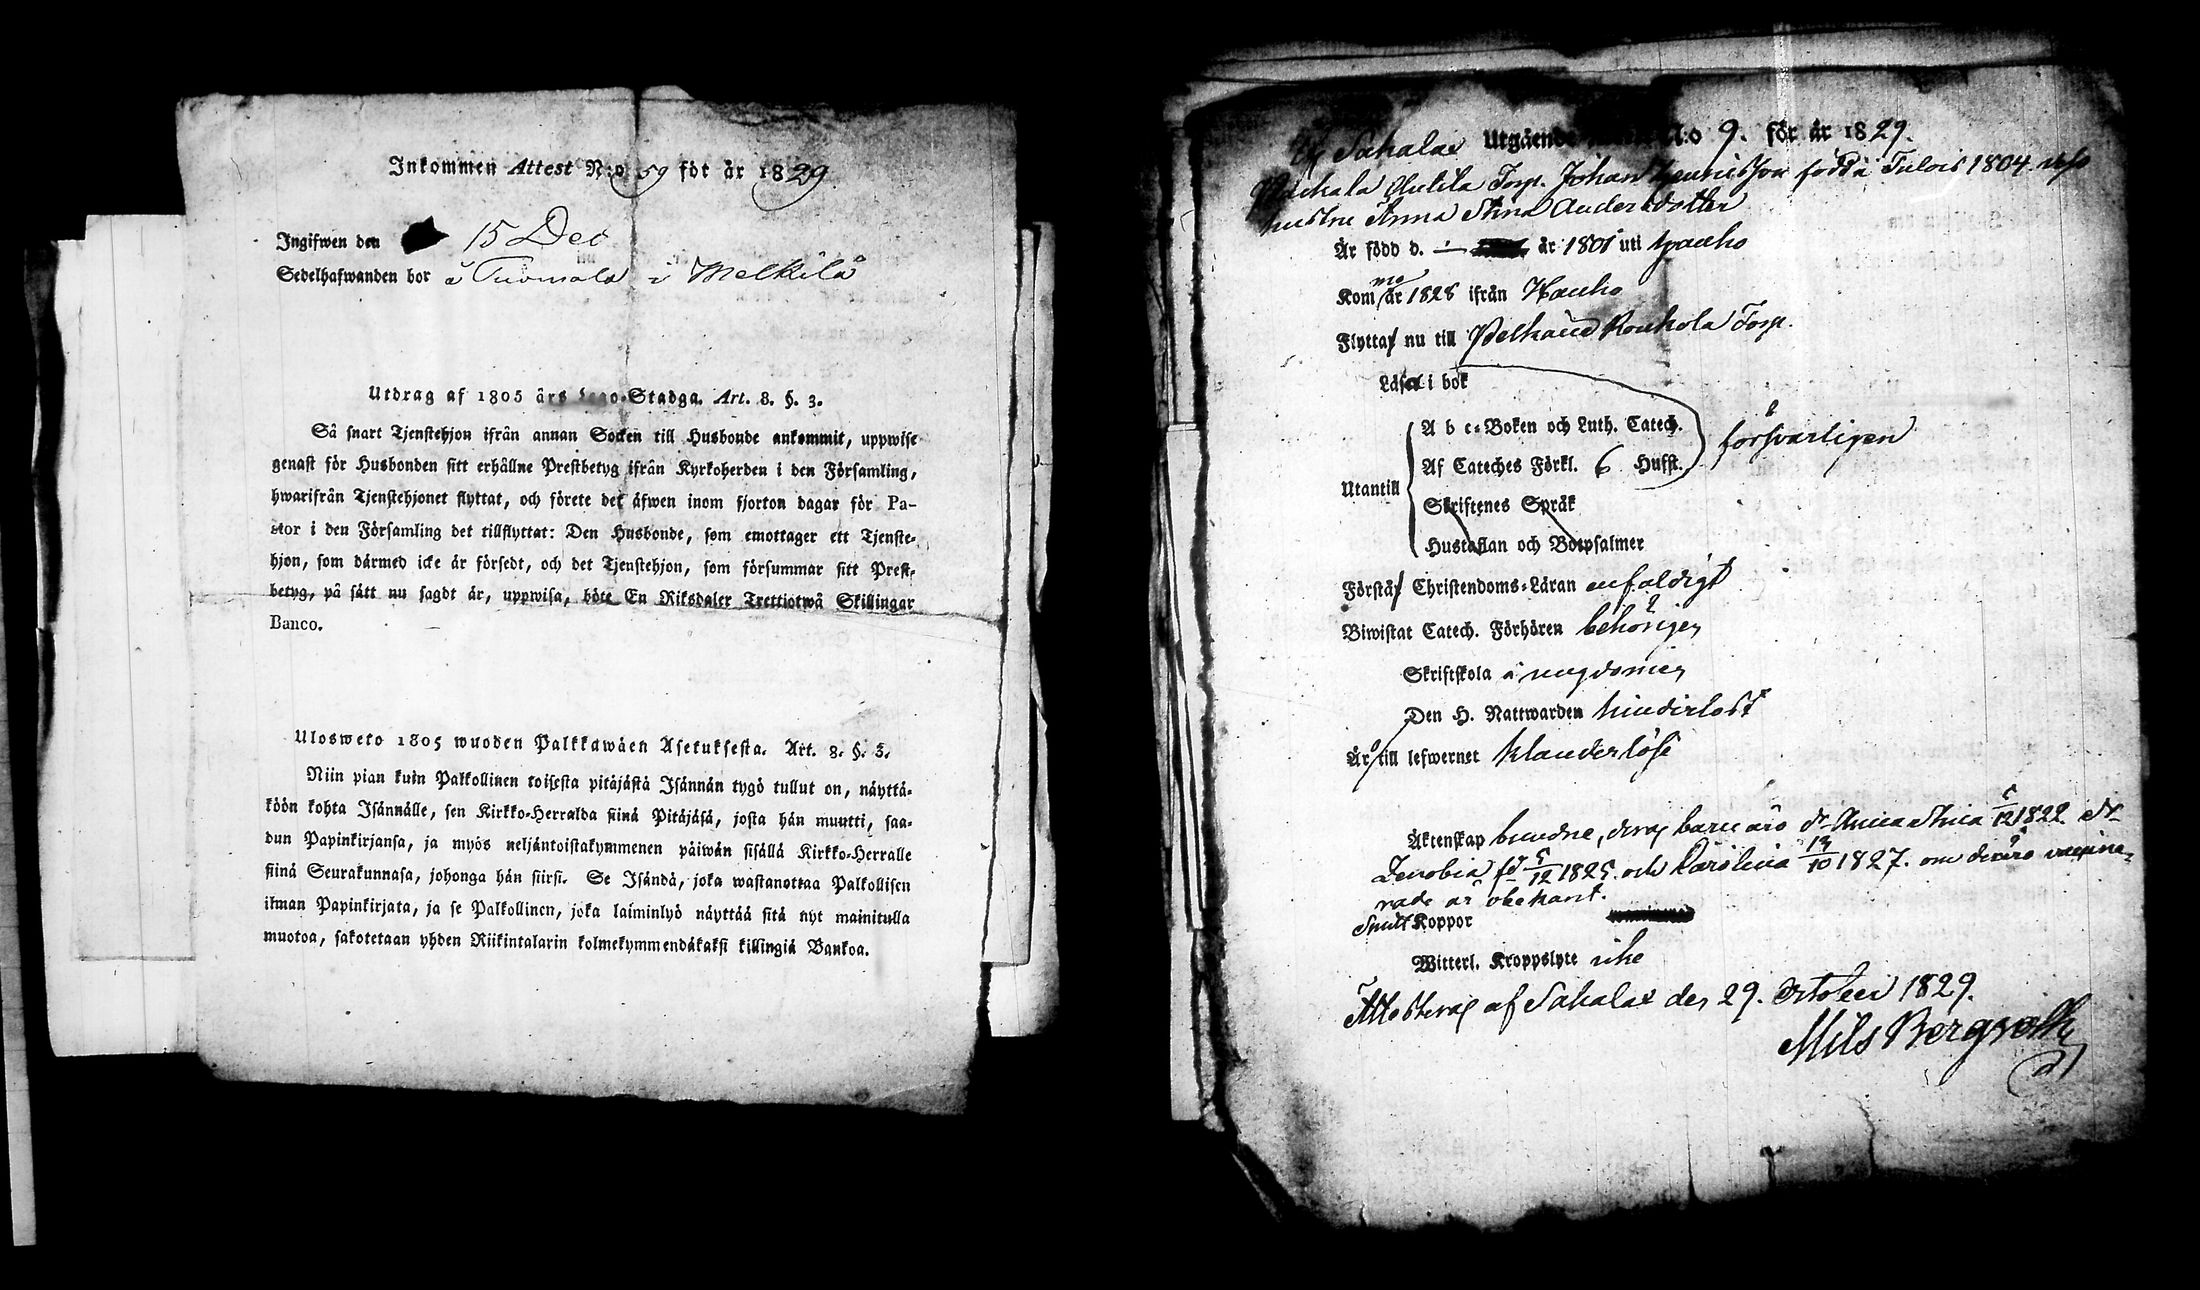 Inkommen Attest N:o 59 för år 1829
Ingifwen den 15 Dec
Sedelhafwanden bor å Tuomala i Melkilä
Utdrag af 1805 års Lego-Stadga. Art. 8. §. 3.
Så snart Tjenstehjon ifrån annan Socken till Husbonde ankommit, uppwise
genast för Husbonden sitt erhållne Prestbetyg ifrån Kyrkoherden i den Församling,
hwarifrån Tjenstehjonet flyttat, och förete det äfwen inom fjorton dagar för Pa-
stor i den Församling det tillflyttat: Den Husbonde, som emottager ett Tjenste-
hjon, som därmed icke är försedt, och det Tjenstehjon, som försummar sitt Prest-
betyg, på sätt nu sagdt är, uppwisa, böte En Riksdaler Trettiotwå Skillingar
Banco.
Ulosweto 1805 wuoden Palkkawäen Asetuksesta. Art. 8. §. 3.
Niin pian kuin Palkollinen toisesta pitäjästä Isännän tygö tullut on, näyttä-
köön kohta Isännälle, sen Kirkko-Herralda siinä Pitäjäsä, josta hän muutti, saa-
dun Papinkirjansa, ja myös neljäntoistakymmenen päiwän sisällä Kirkko-Herralle
siinä Seurakunnasa, johonga hän siirsi. Se Isändä, joka wastanottaa Palkollisen
ilman Papinkirjata, ja se Palkollinen, joka laiminlyö näyttää sitä nyt mainitulla
muotoa, sakotetaan yhden Riikintalarin kolmekymmendäkaksi killingiä Bankoa.
Sahalax Utgående N:o 9. för år 1829.
Anttila Torp. Johan Henricsson född i Tulois 1804 och
hustru Anna Stina Andersdotter
Är född d. år 1801 uti Hauho
Kommo år 1828 ifrån Hauho
Flytta nu till Pelkäne Roukola Torp.
Läsa i bok
Utantill
A b c-Boken och Luth. Catech.
Af Cateches Förkl. 6 Hufst.
försvarligen
Skriftenes Språk
Hustaflan och Botpsalmer
Förstå Christendoms-Läran enfaldigt
Biwistat Catech. Förhören behörigen
Skriftskola i ungdomen
Den H. Nattwarden hinderlöst
Äro till lefwernet klanderlöse
Äktenskap bundne, deras barn äro dr Anna Stina 5/12 1822 dr
Zenobia fd 5/12 1825. och Karolina 13/10 1827. om de äro vaccine-
rade är obekant.
Koppor
Witterl. Kroppslyte icke
Attesteras af Sahalax den 29. October 1829.
Nils Bergroth